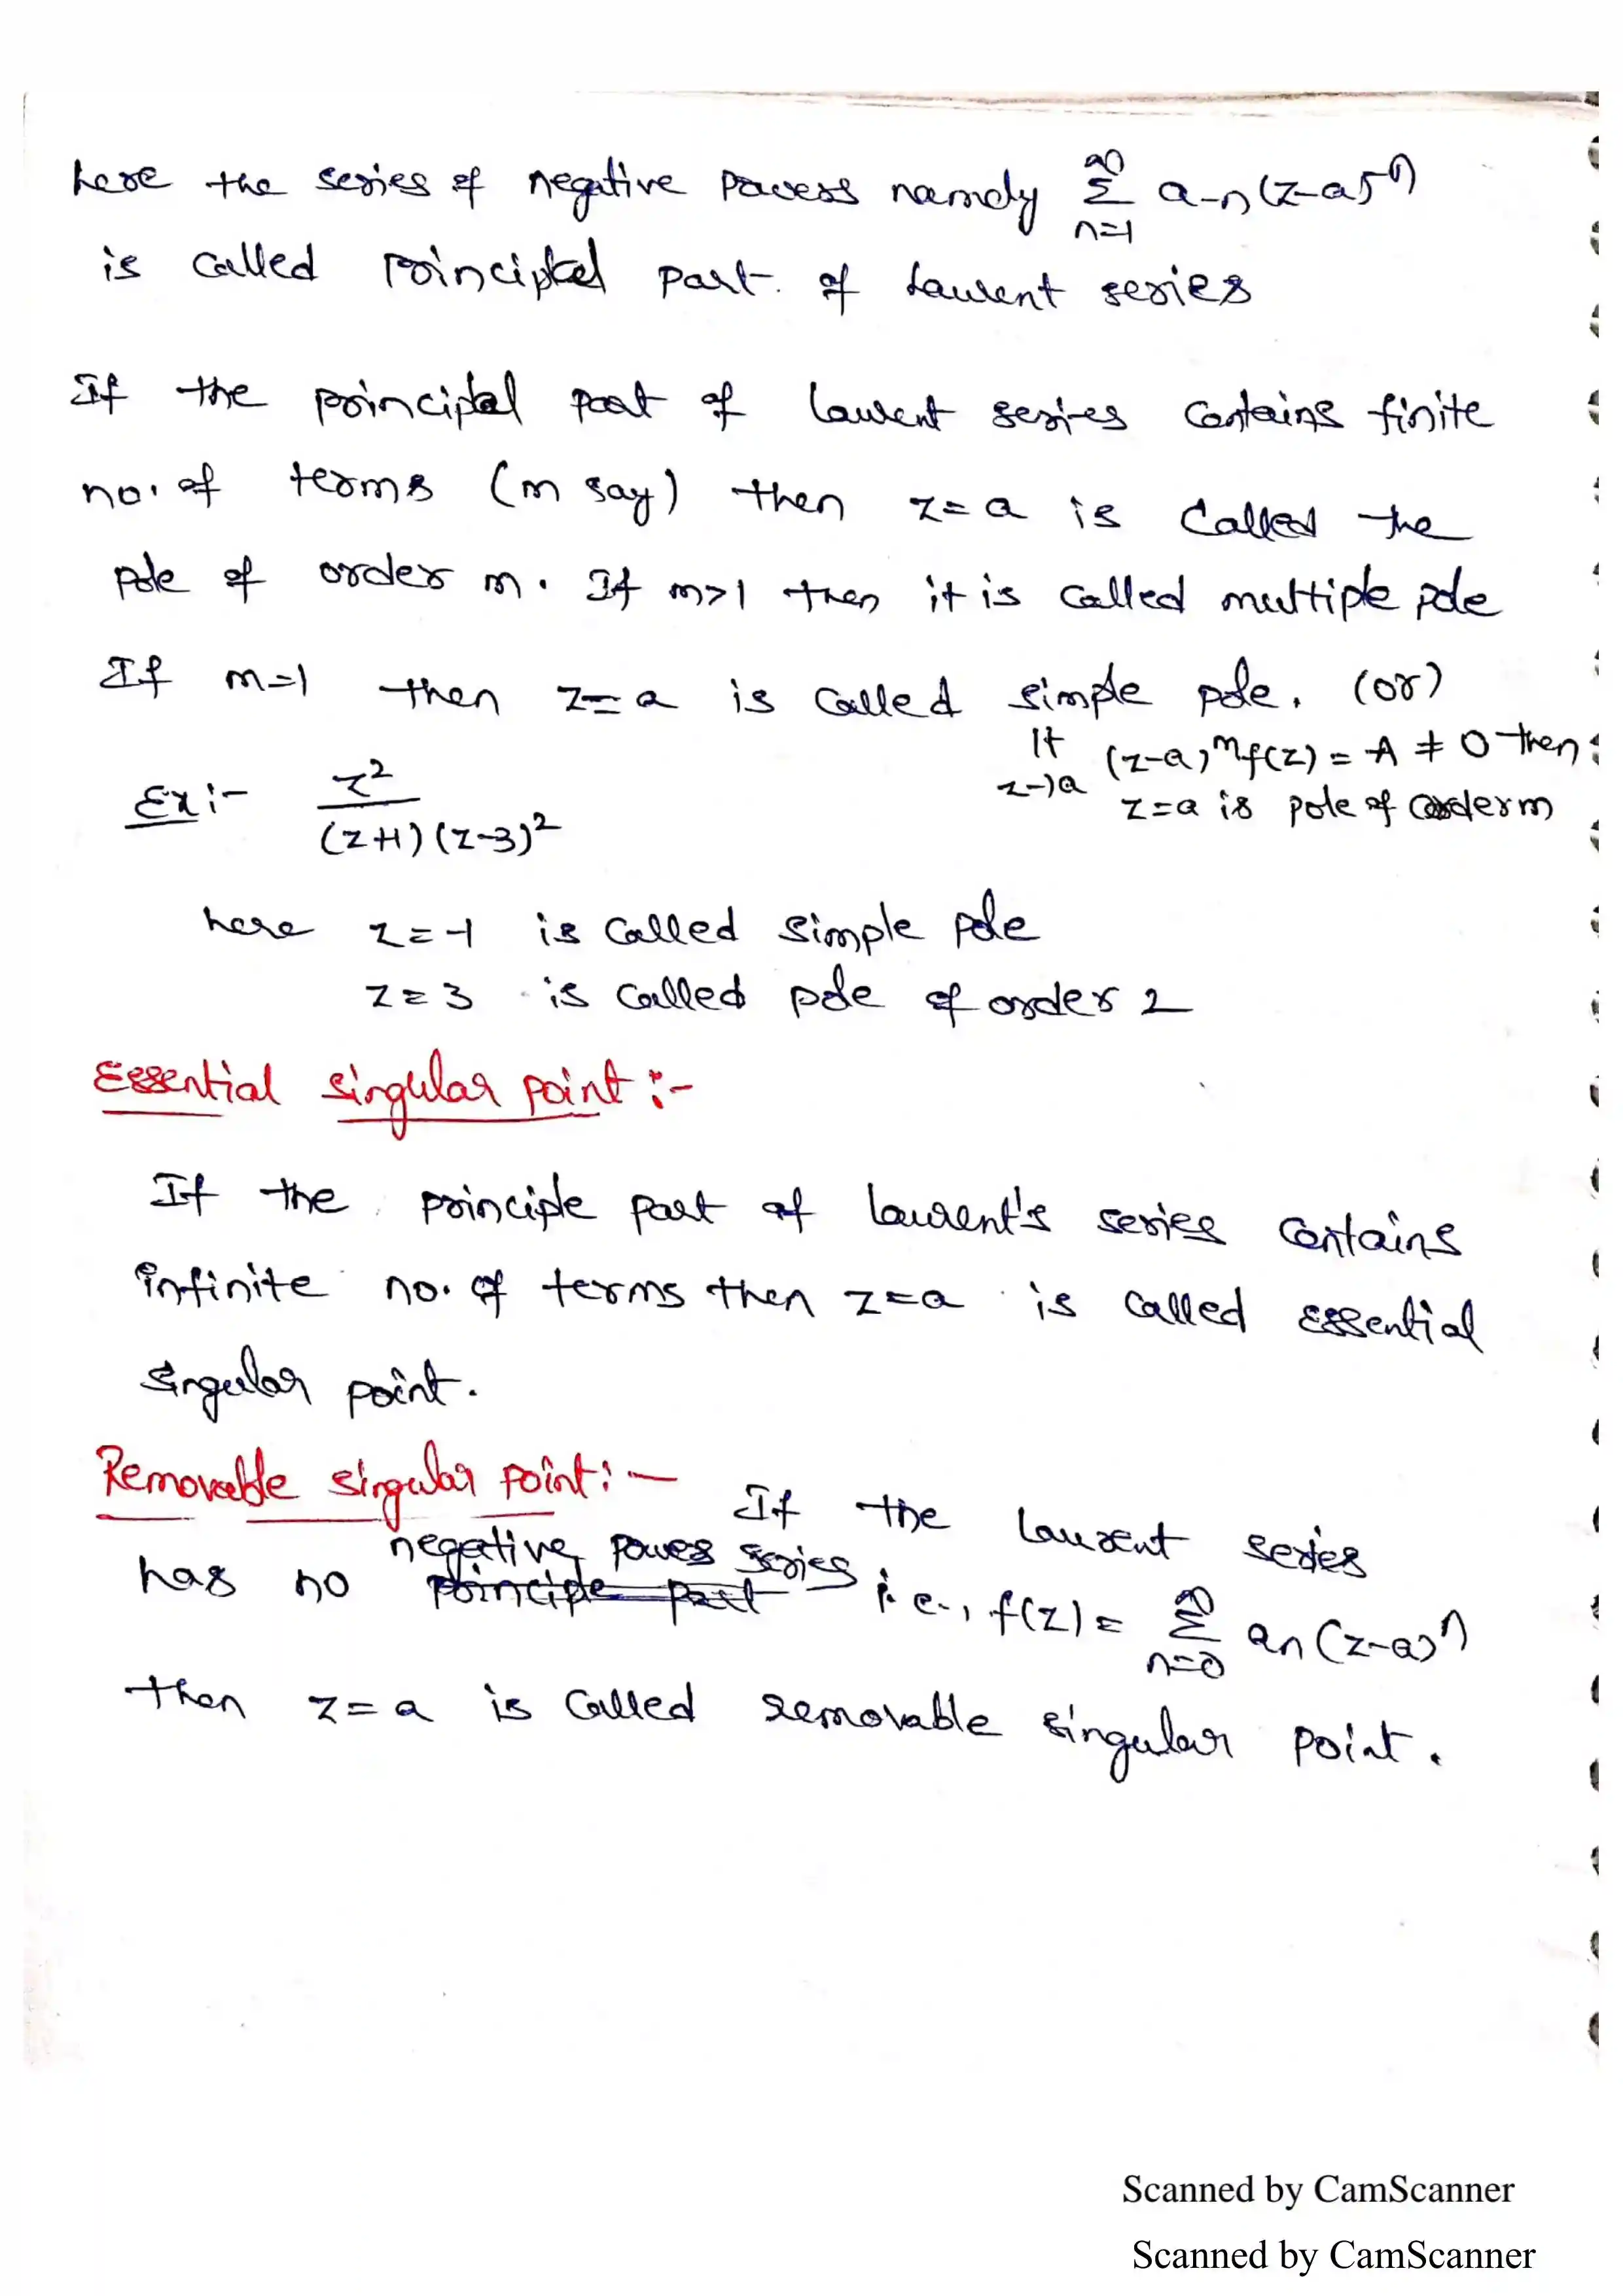 here the series of negative powers namely ∞Σn=1 a-n(z-a)^-n
is called principal part. of Laurent series
If the principal part of Laurent series contains finite
no. of terms (m say) then z=a is called the
pole of order m. If m>1 then it is called multiple pole
If m=1 then z=a is called simple pole. (or)
lt z→a (z-a)^m f(z) = A ≠ 0 then
z=a is pole of order m
Ex:- z^2 / (z+1)(z-3)^2
here z=-1 is called simple pole
z=3 is called pole of order 2
Essential singular point :-
If the principle part of laurent's series contains
infinite no. of terms then z=a is called essential
singular point.
Removable singular point: -
If the laurent series
has no negative power series i.e., f(z) = ∞Σn=0 an(z-a)^n
principle part
then z=a is called removable singular point.
Scanned by CamScanner
Scanned by CamScanner